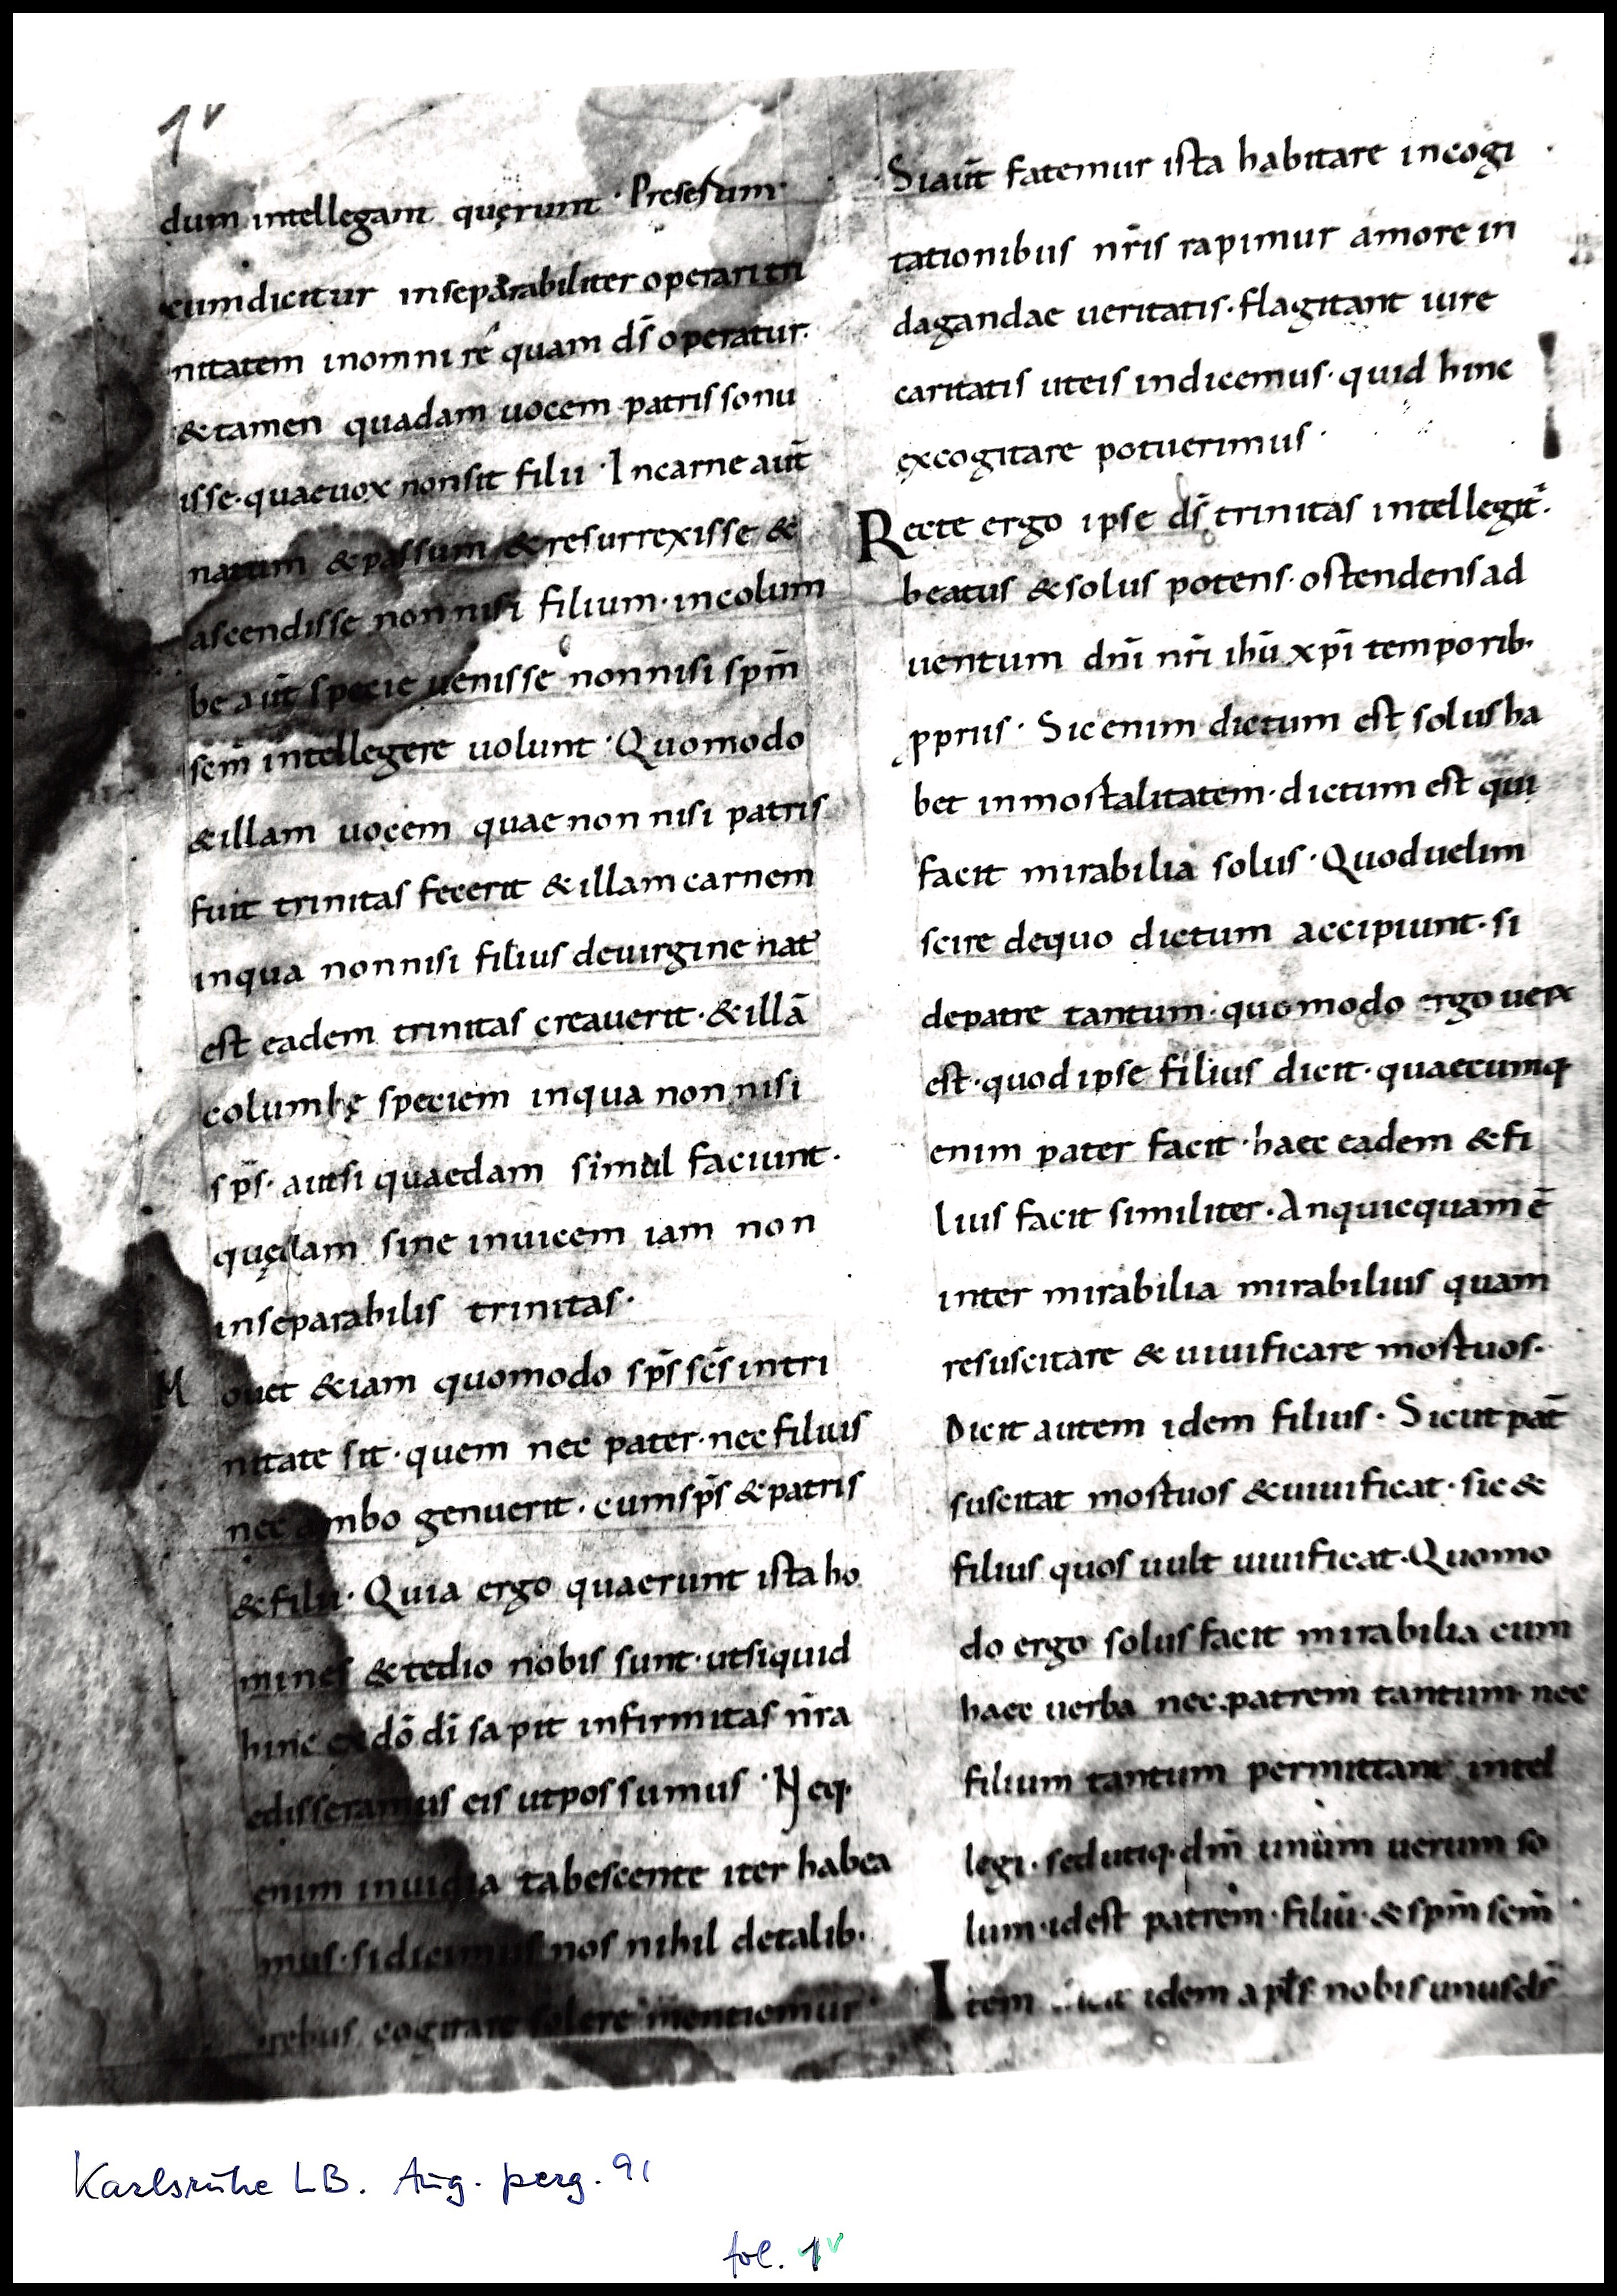 1v
dum intellegant quęrunt · Presertim
cum dicitur inseparabiliter operari tri
nitatem in omni re quam dſ operatur·
& tamen quadam uocem patris sonu
isse· quae uox non sit filii · In carne aut̄
natum & passum & resurrexisse &
ascendisse non nisi filium· in colum
be aut̄ specie uenisse non nisi spm̄
scm̄ intellegere uolunt · Quomodo
& illam uocem quae non nisi patris
fuit trinitas fecerit & illam carnem
in qua non nisi filius de uirgine nat᾽
est eadem trinitas creauerit· & illā
columbę speciem in qua non nisi
sp̄s· aut si quaedam simul faciunt·
quędam sine inuicem iam non
inseparabilis trinitas·
Mouet & iam quomodo sp̄s sc̄s in tri
nitate sit· quem nec pater· nec filius
nec ambo genuerit· cum sp̄s & patris
& filii· Quia ergo quaerunt ista ho
mines & tedio nobis sunt· ut si quid
hinc ex dō dī sapit infirmitas nr̄a
edisseramus eis ut possumus · Neq·
enim inuidia tabescente iter habea
mus· si dicimus nos nihil de talib·
rebus cogitare solere mentiemur
Si aut̄ fatemur ista habitare in cogi
tationibus nr̄is rapimur amore in
dagandae ueritatis· flagitant iure
caritatis ut eis indicemus· quid hinc
excogitare potuerimus·
Recte ergo ipse dſ̄ trinitas intellegit᾽·
beatus & solus potens· ostendens ad
uentum dnī nrī ihū xp̄ī temporib·
ppriis· Sic enim dictum est solus ha
bet inmortalitatem· dictum est qui
facit mirabilia solus· Quod uelim
scire de quo dictum accipiunt· si
de patre tantum· quomodo ergo uerx
est· quod ipse filius dicit· quaecumq·
enim pater facit· haec eadem & fi
lius facit similiter· An quicquam ē
inter mirabilia mirabilius quam
resuscitare & uiuificare mortuos·
Dicit autem idem filius· Sicut pat̄
suscitat mortuos & uiuificat· sic &
filius quos uult uiuificat· Quomo
do ergo solus facit mirabilia cum
haec uerba nec patrem tantum nec
filium tantum permittant intel
legi· sed utiq· dm̄ unum uerum so
lum· idest patrem· filiū· & spm̄ scm̄
Item idem apłs· nobis unus ds̄
Karlsruhe LB. Aug. perg. 91
fol. 1v